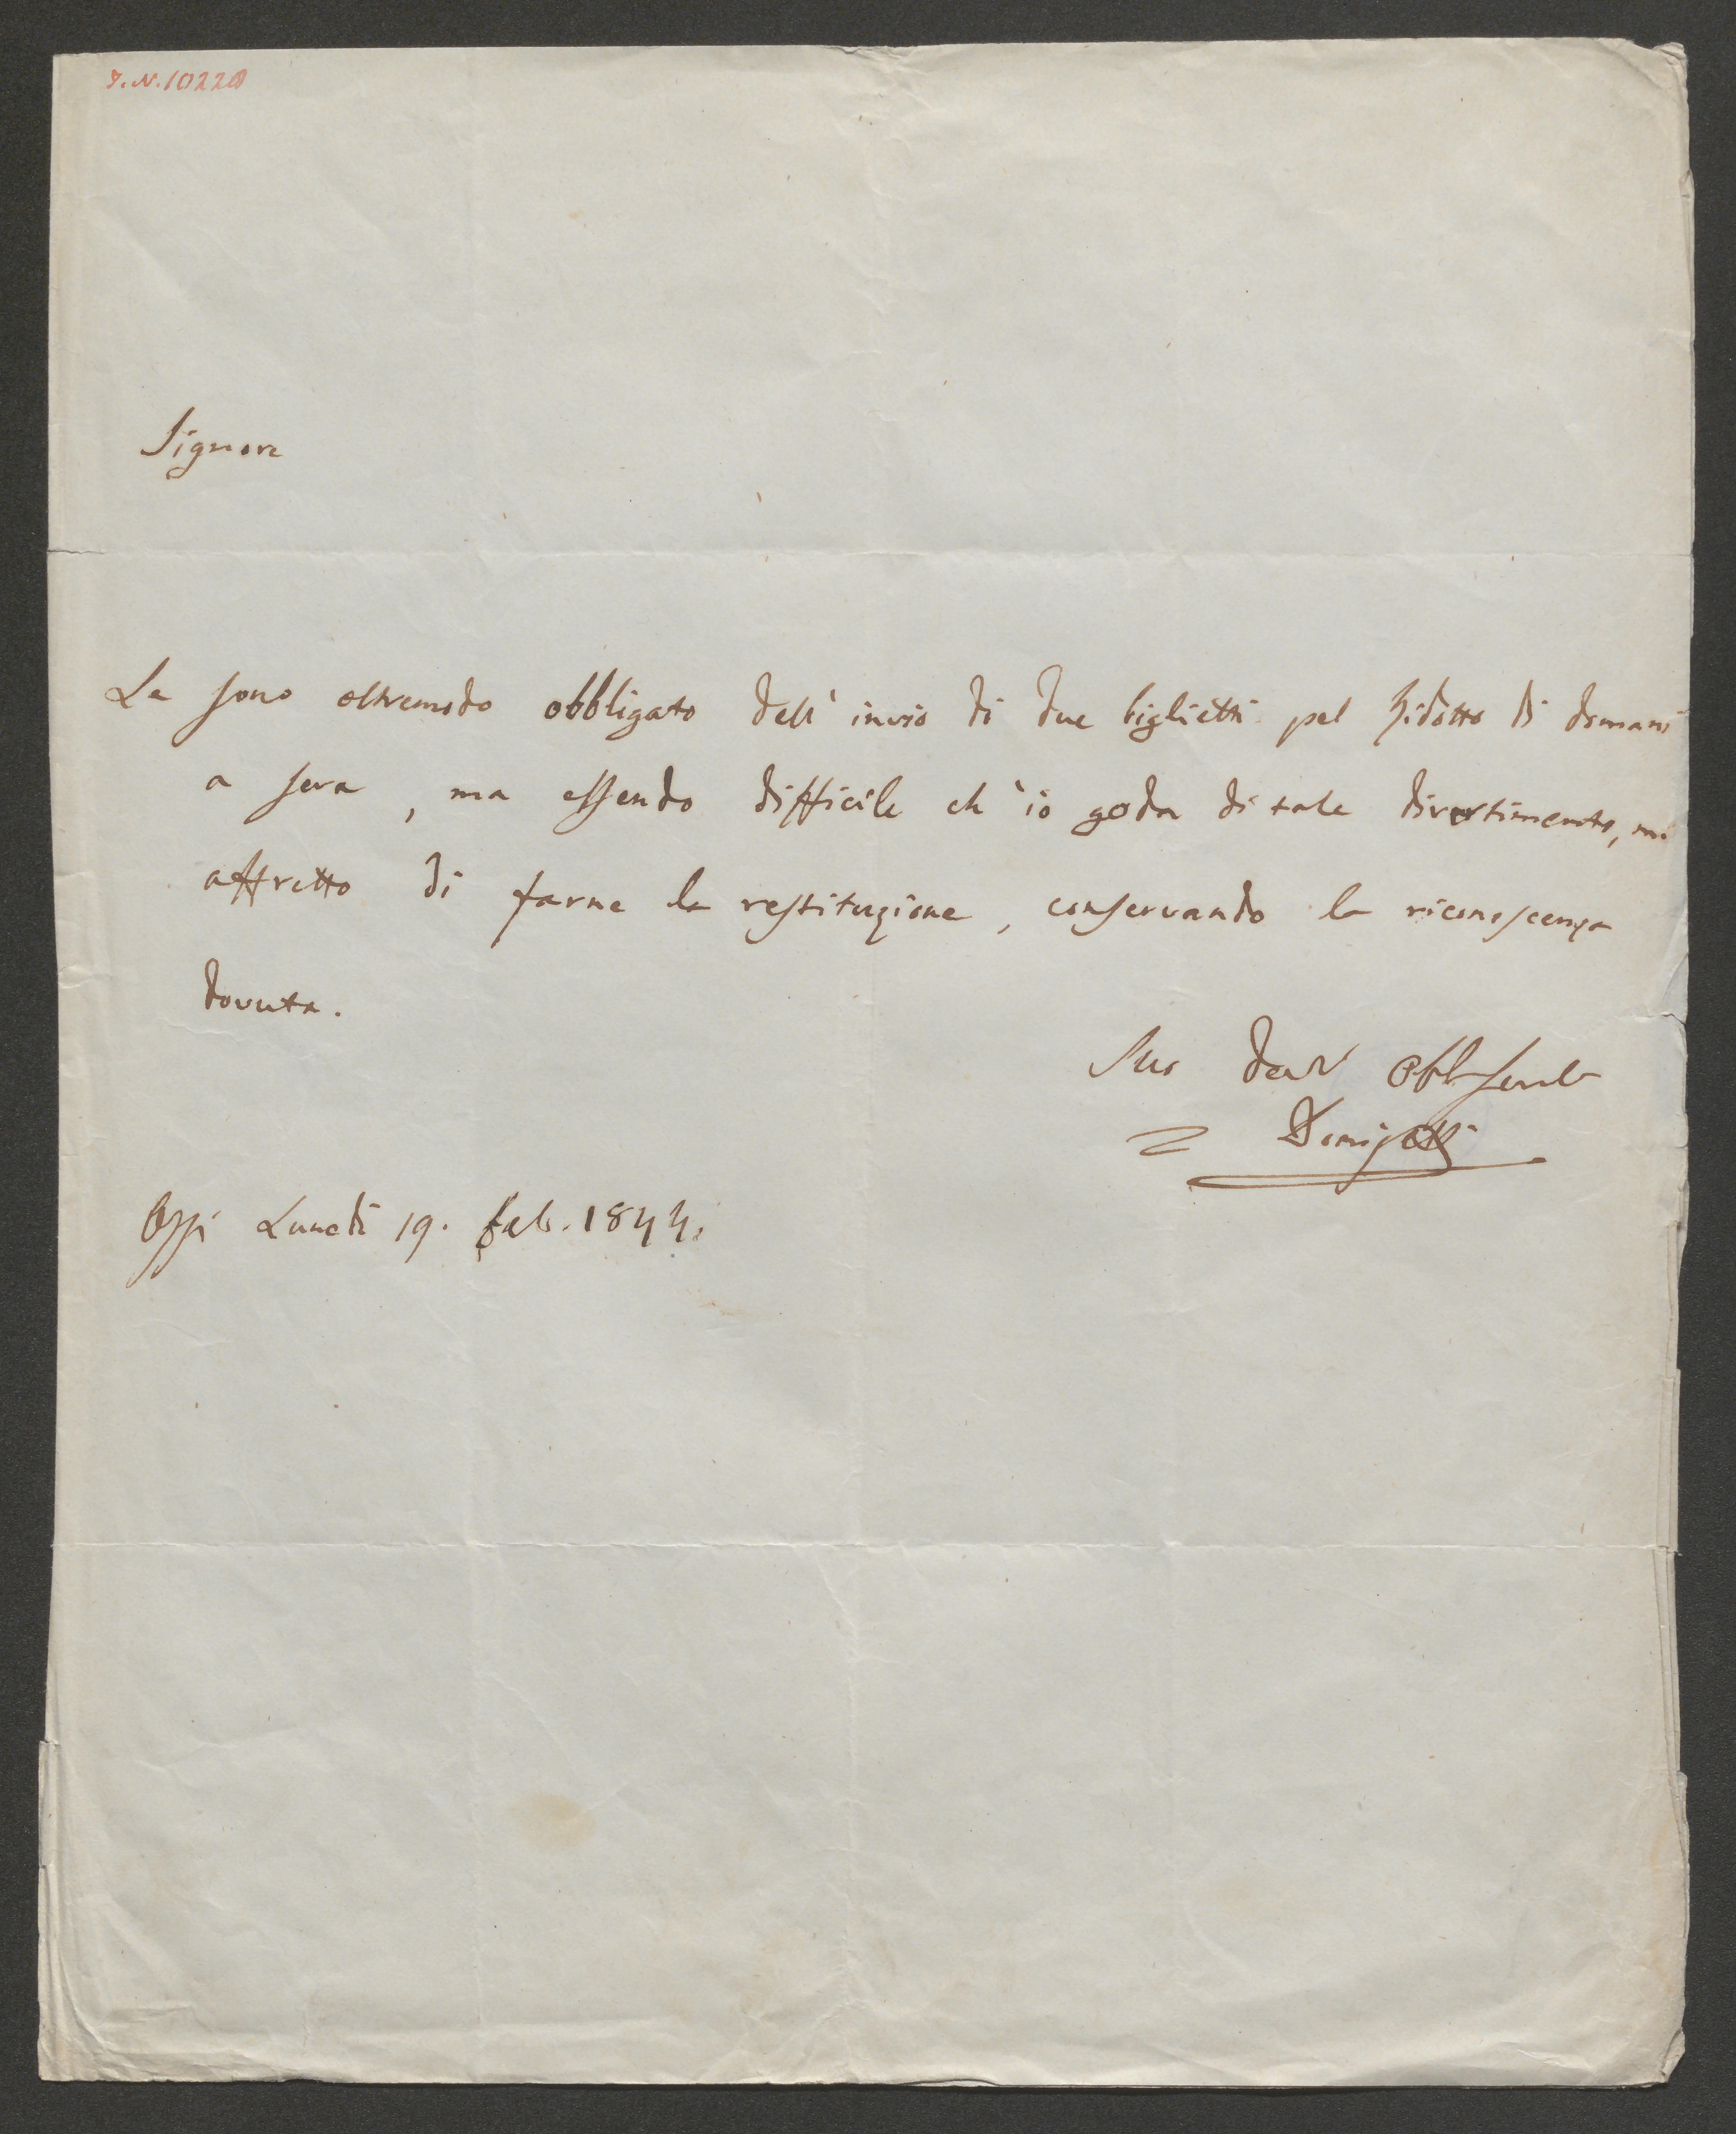 I.N.10220
Signore
Le sono oltremodo obbligato dell'invio di due biglietti pel Ridotto di domani
a sera, ma essendo difficile ch'io goda di tale divertimento, mi
affretto di farne la restituzione, conservando la riconoscenza
dovuta.
Suo
Donizetti
Oggi Lunedì 19. feb. 1844.